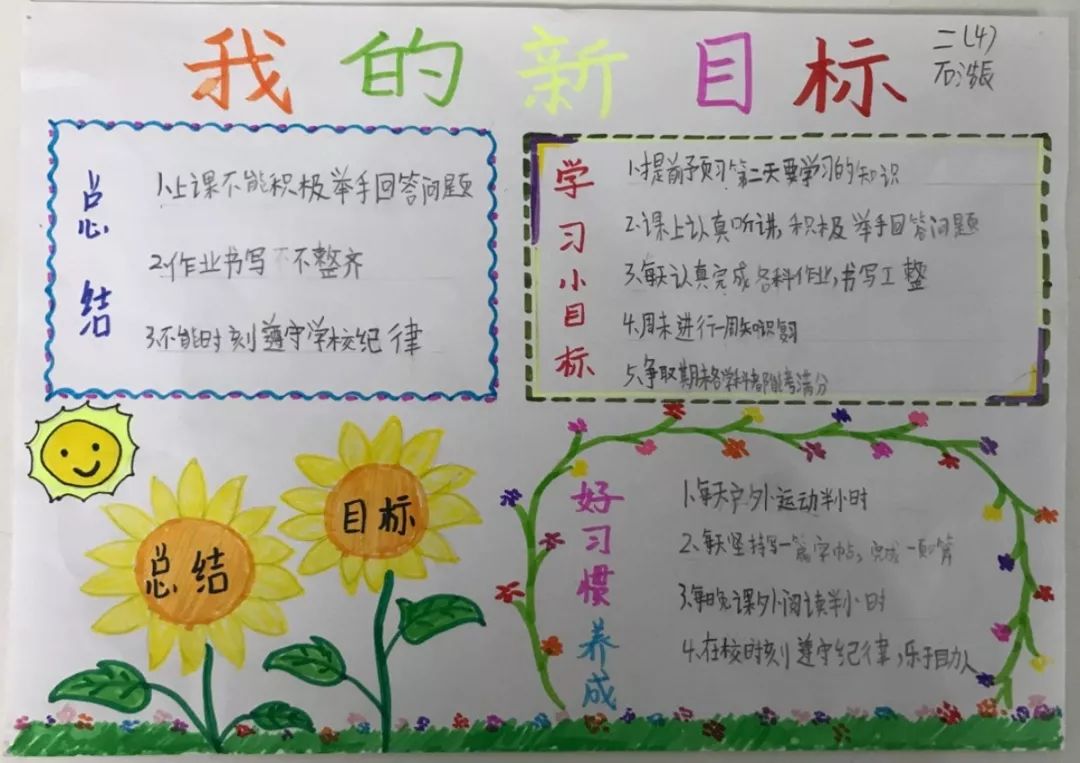 我的新目标
二(4)
总结
1.上课不能积极举手回答问题
2.作业书写不不整齐
3.不能时刻遵守学校纪律
学习小目标
1.提前预习第二天要学习的知识
2.课上认真听讲,积极举手回答问题
3.每天认真完成各科作业,书写工整
4.周末进行一周知识复习
5.争取期末各学科都能考满分
总结
目标
好习惯养成
1.每天户外运动半小时
2.每天坚持写一篇字帖,完成一页口算
3.每晚课外阅读半小时
4.在校时刻遵守纪律,乐于助人